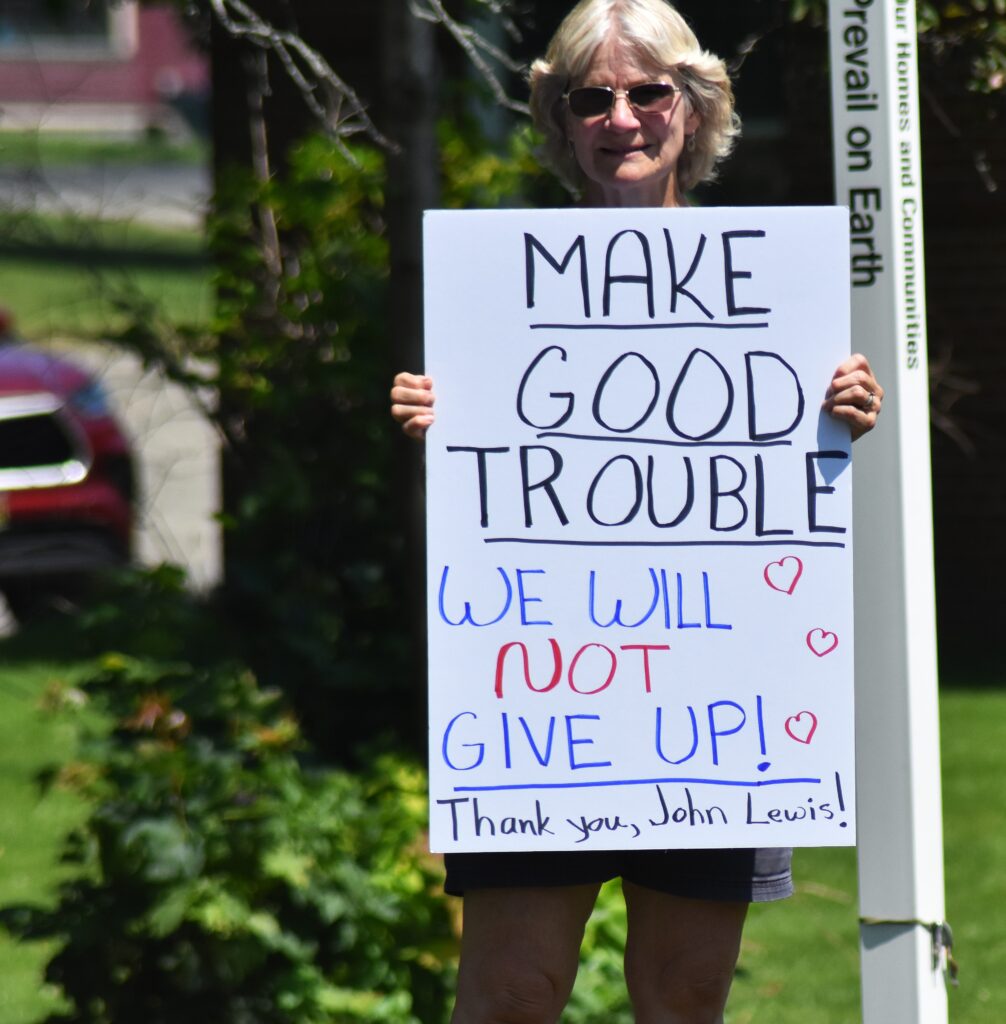 MAKE
GOOD
TROUBLE
WE WILL
NOT
GIVE UP!
Thank you, John Lewis!
Prevail on Earth
our Homes and Communities